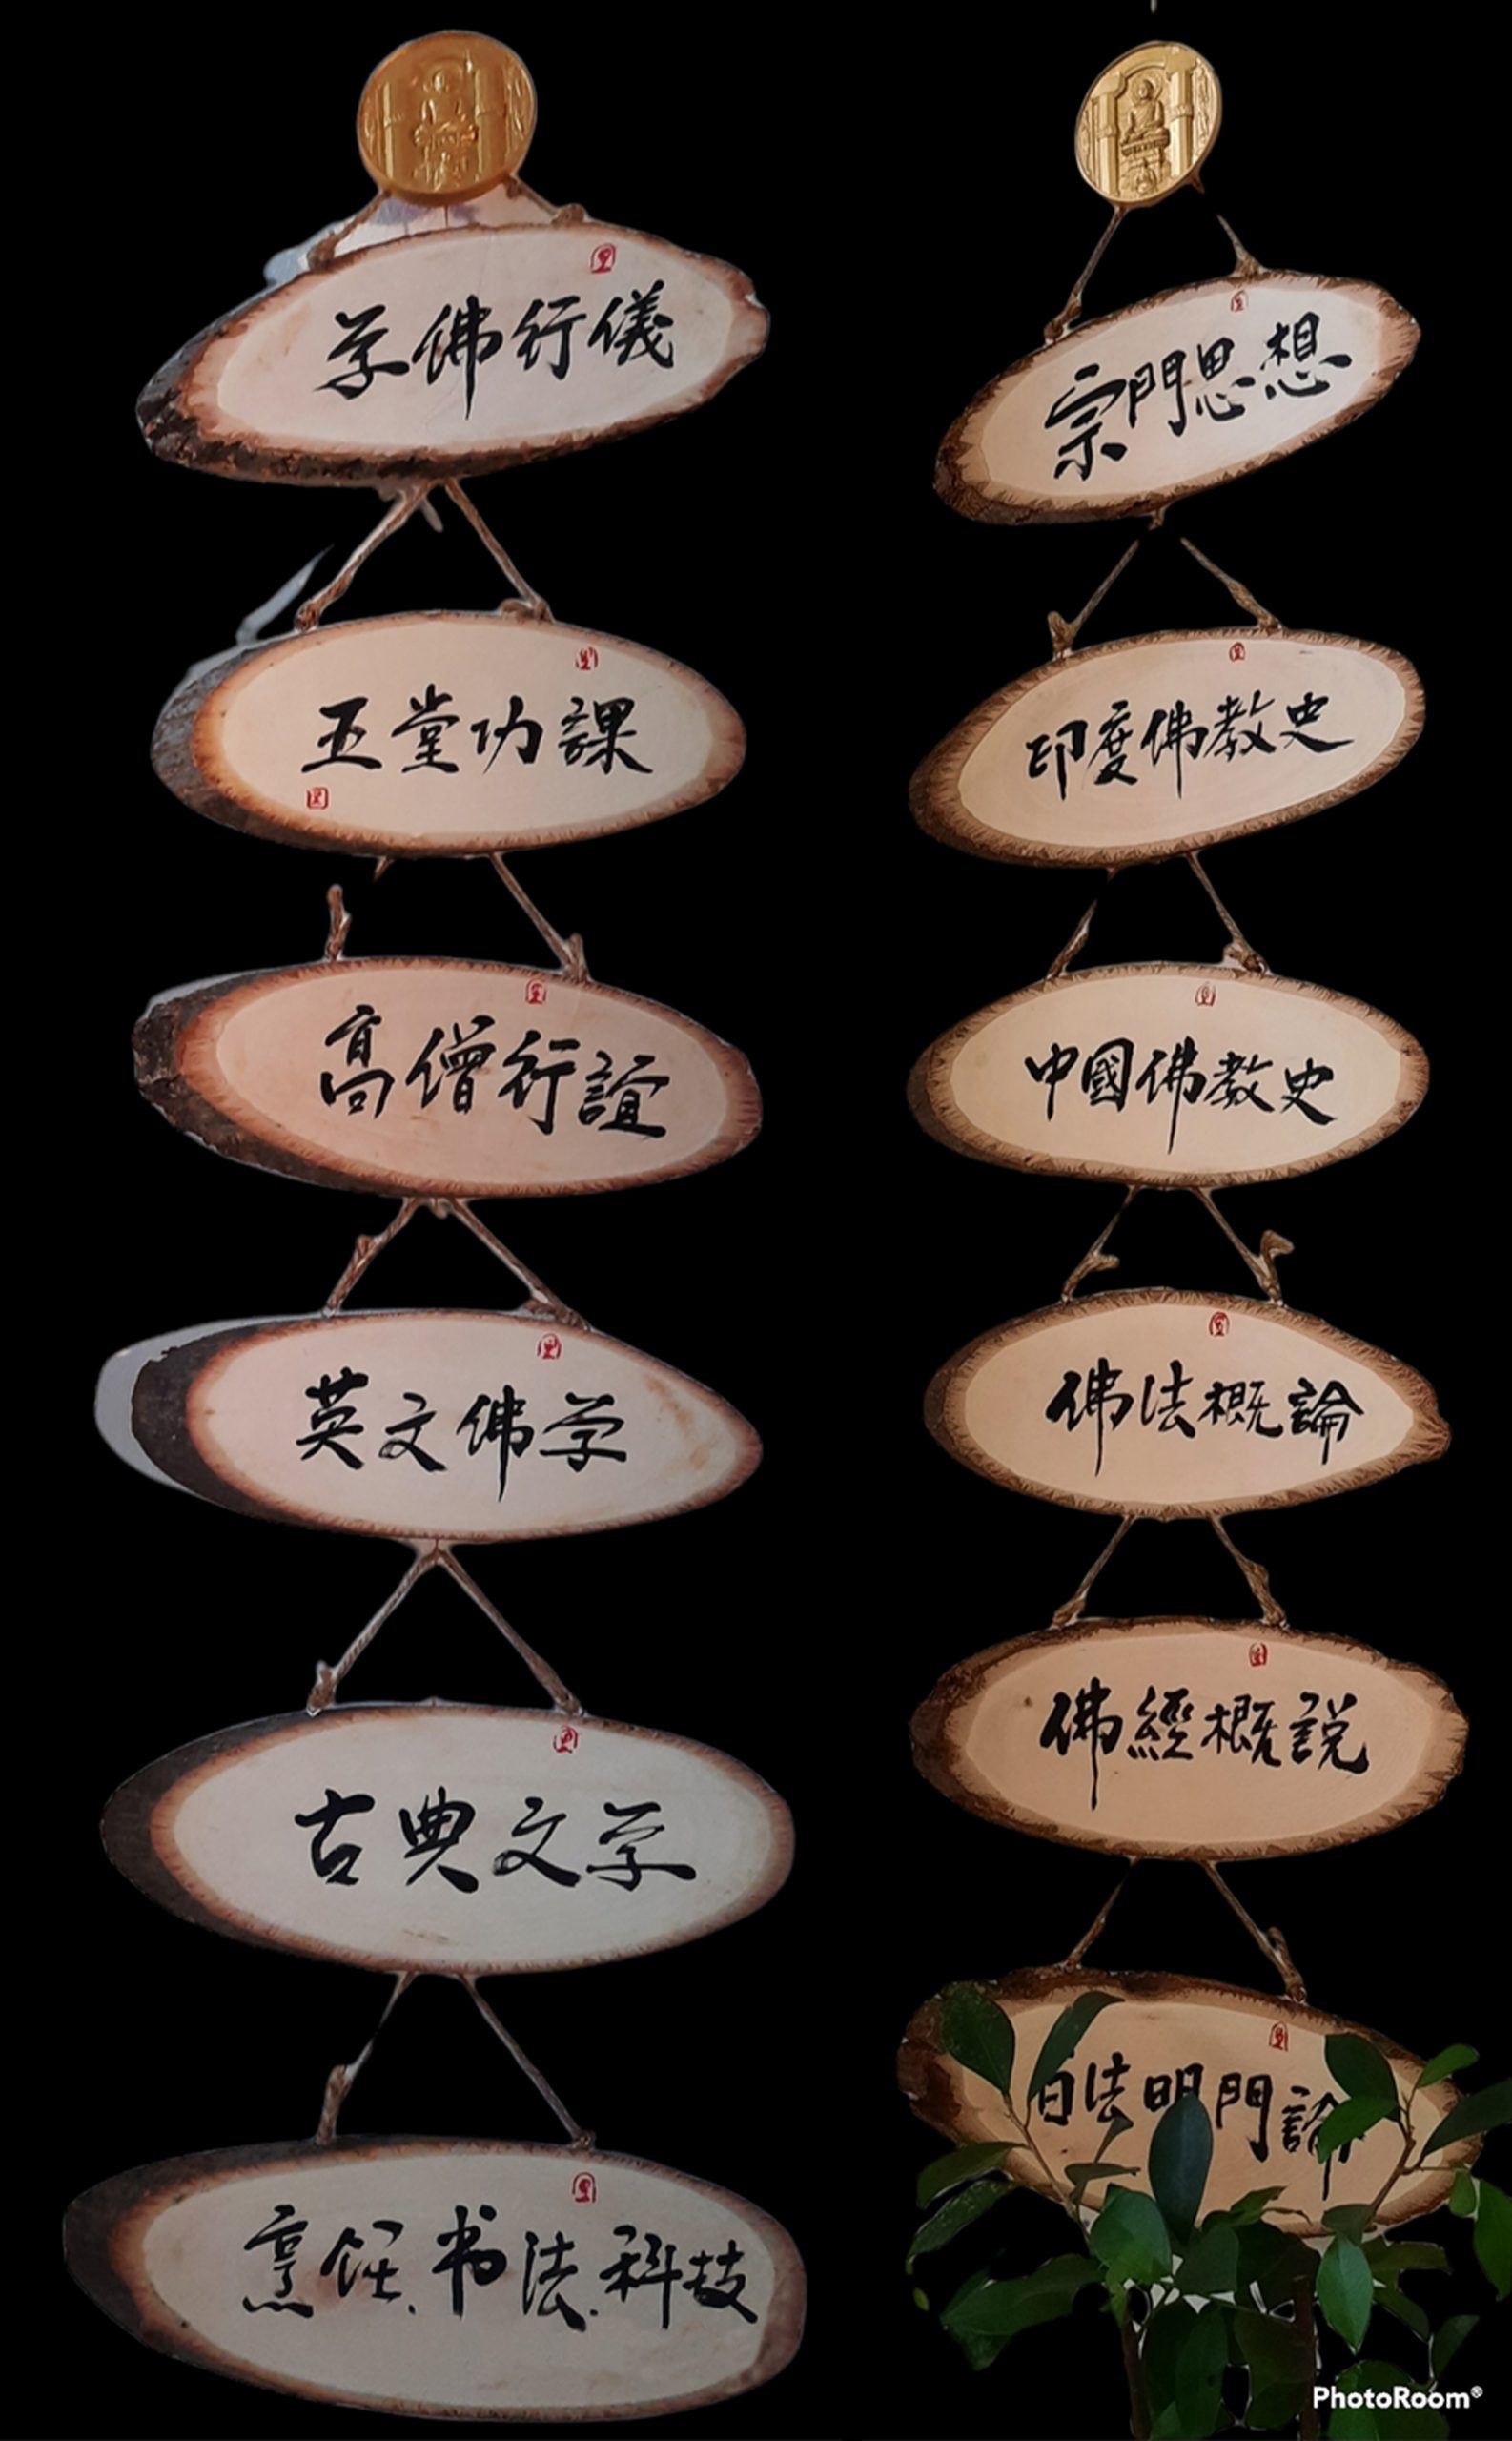 学佛行儀
五堂功課
高僧行誼
英文佛学
古典文学
烹饪.书法.科技
宗門思想
印度佛教史
中國佛教史
佛法概論
佛經概説
百法明門論
PhotoRoom®